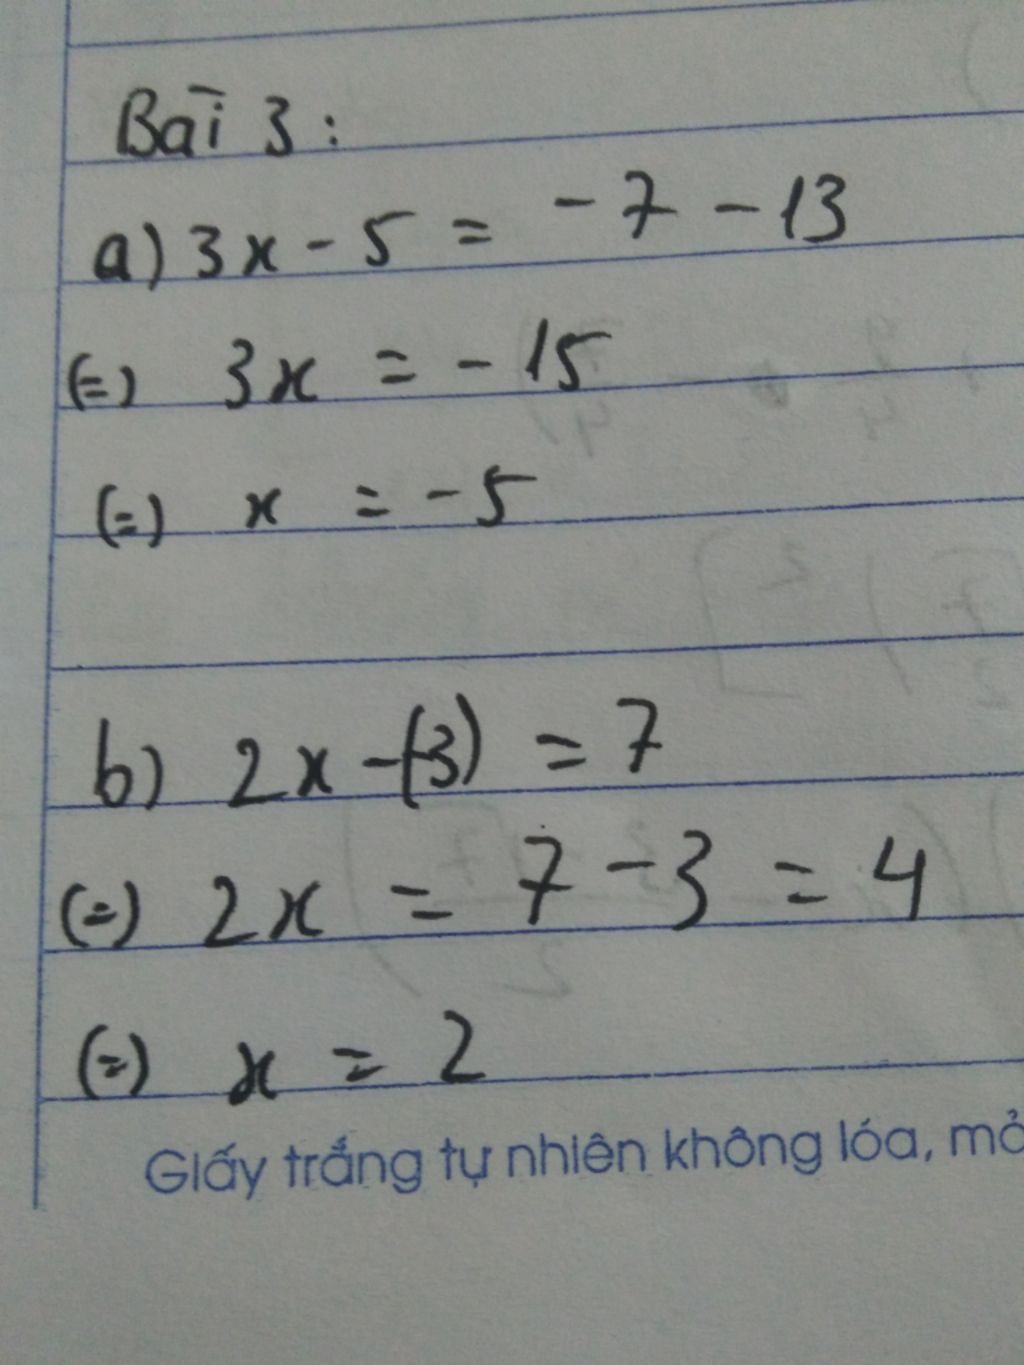 Bài 3:
a) 3x - 5 = -7 - 13
(=) 3x = -15
(=) x = -5
b) 2x - (-3) = 7
(=) 2x = 7 - 3 = 4
(=) x = 2
Giấy trắng tự nhiên không lóa, mỏ